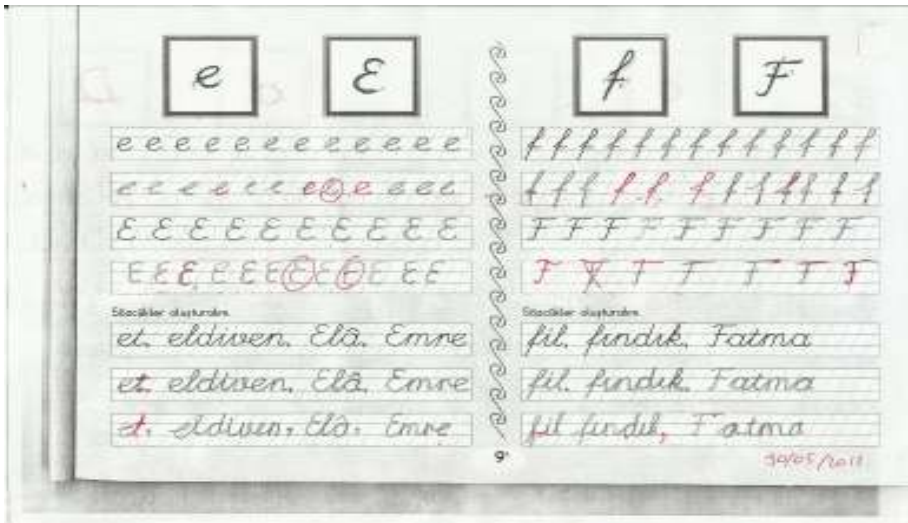 e E
e e e e e e e e e e e e
e e e e e e e e e e e e
E E E E E E E E E E
E E E E E E E E E E E E
Sözcükler oluşturalım.
et, eldiven, Elâ, Emre
et, eldiven, Elâ, Emre
et, eldiven, Elâ, Emre
f F
f f f f f f f f f f f f f
f f f f f f f f f f f f
F F F F F F F F F
F F F F F F F
Sözcükler oluşturalım.
fil, fındık, Fatma
fil, fındık, Fatma
fil fındık, Fatma
9